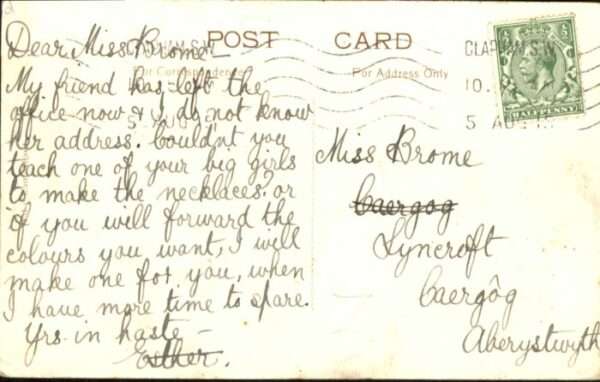 POST CARD
For Correspondence
For Address Only
CLAPHAM S.W.
10.
5 AU
HALFPENNY
Dear Miss Brome –
My friend has left the
office now & I do not know
her address. Couldn't you
teach one of your big girls
to make the necklaces? or
if you will forward the
colours you want, I will
make one for you, when
I have more time to spare.
Yrs. in haste –
Esther.
Miss Brome
Caergog
Lyncroft
Caergôg
Aberystwyth